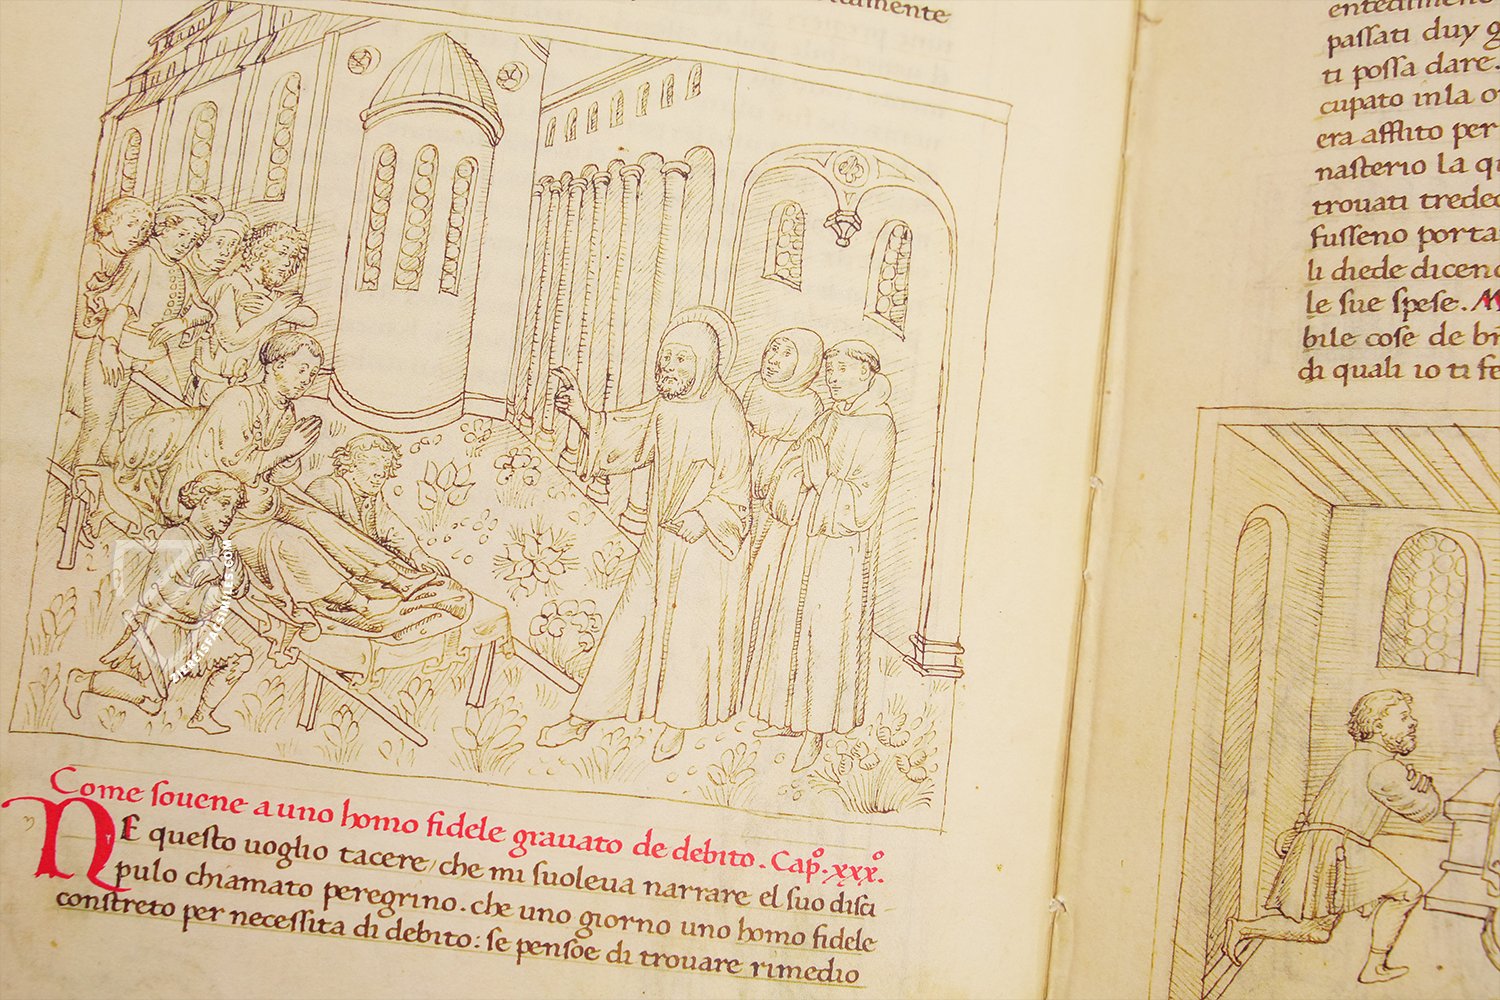 tamente
Come souene a uno homo fidele grauato de debito. Cap.º xxx.º
NE questo uoglio tacere / che mi suoleua narrare el suo disci
pulo chiamato peregrino. che uno giorno uno homo fidele
constreto per necessita di debito: se pensoe di trouare rimedio
passati duy g
ti possa dare.
cupato in la o
era afflito per
nasterio la q
trouati tredec
fusseno porta
li diede dicend
le sue spese. M
bile cose de b
di quali io ti fe
ZIEREISFACSIMILES.COM